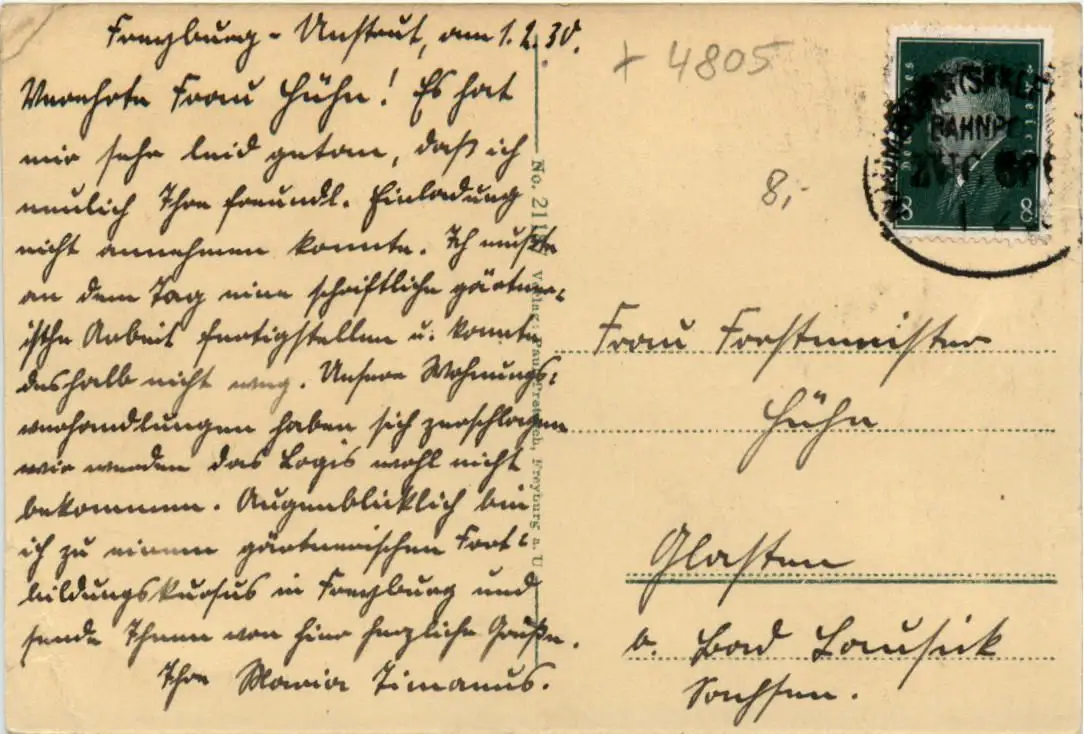 Freyburg - Unstrut, am 1.2.30.
Verehrte Frau Hühn! Es hat
mir sehr leid getan, daß ich
neulich Ihre freundl. Einladung
nicht annehmen konnte. Ich mußte
an dem Tag eine schriftliche gärtner-
ische Arbeit fertigstellen u. konnte
deshalb nicht weg. Unsere Wohnungs-
verhandlungen haben sich zerschlagen
wir werden das Logis wohl nicht
bekommen. Augenblicklich bin
ich zu einem gärtnerischen Fort-
bildungskursus in Freyburg und
sende Ihnen von hier herzliche Grüße.
Ihre Maria Timanus.
+ 4805
8,-
No. 211 Verlag: Freyburg a. U
Deutsches Reich
8 8
BAHNPOST
ZUG
Frau Forstmeister
Hühn
Glasten
b. Bad Lausick
Sachsen.